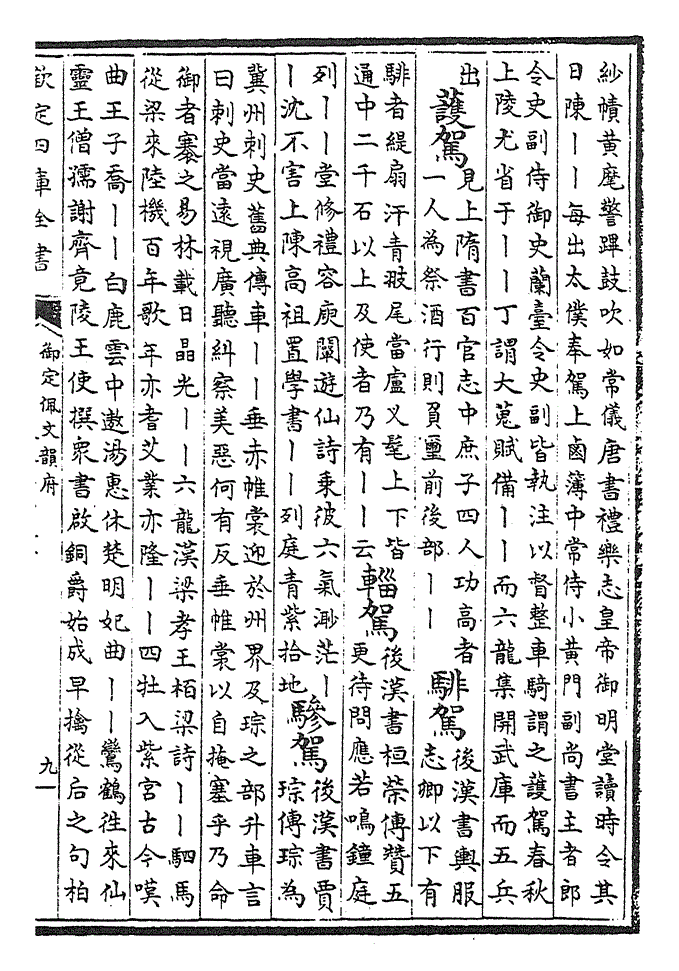 紗幘黄麾警蹕鼓吹如常儀唐書禮樂志皇帝御明堂讀時令其
日陳丨丨每出太僕奉駕上鹵簿中常侍小黄門副尚書主者郎
令史副侍御史蘭臺令史副皆執注以督整車騎謂之護駕春秋
上陵尤省于丨丨丁謂大蒐賦備丨丨而六龍集開武庫而五兵
出
護駕
見上隋書百官志中庶子四人功高者
一人為祭酒行則負璽前後部丨丨
騑駕
後漢書輿服
志卿以下有
騑者緹扇汗青翅尾當盧义髦上下皆
通中二千石以上及使者乃有丨丨云
輜駕
後漢書桓榮傳贊五
更待問應若鳴鐘庭
列丨丨堂修禮容庾闡遊仙詩乘彼六氣渺茫丨
丨沈不害上陳高祖置學書丨丨列庭青紫拾地
驂駕
後漢書賈
琮傳琮為
冀州刺史舊典傳車丨丨垂赤帷裳迎於州界及琮之部升車言
曰刺史當遠視廣聽糾察美惡何有反垂帷裳以自掩塞乎乃命
御者褰之易林載日晶光丨丨六龍漢梁孝王栢梁詩丨丨駟馬
從梁來陸機百年歌年亦耆艾業亦隆丨丨四牡入紫宮古今嘆
曲王子喬丨丨白鹿雲中遨湯惠休楚明妃曲丨丨鸞鶴徃來仙
靈王僧孺謝齊竟陵王使撰衆書啟銅爵始成早擒從后之句柏
欽定四庫全書
御定佩文韻府
九一